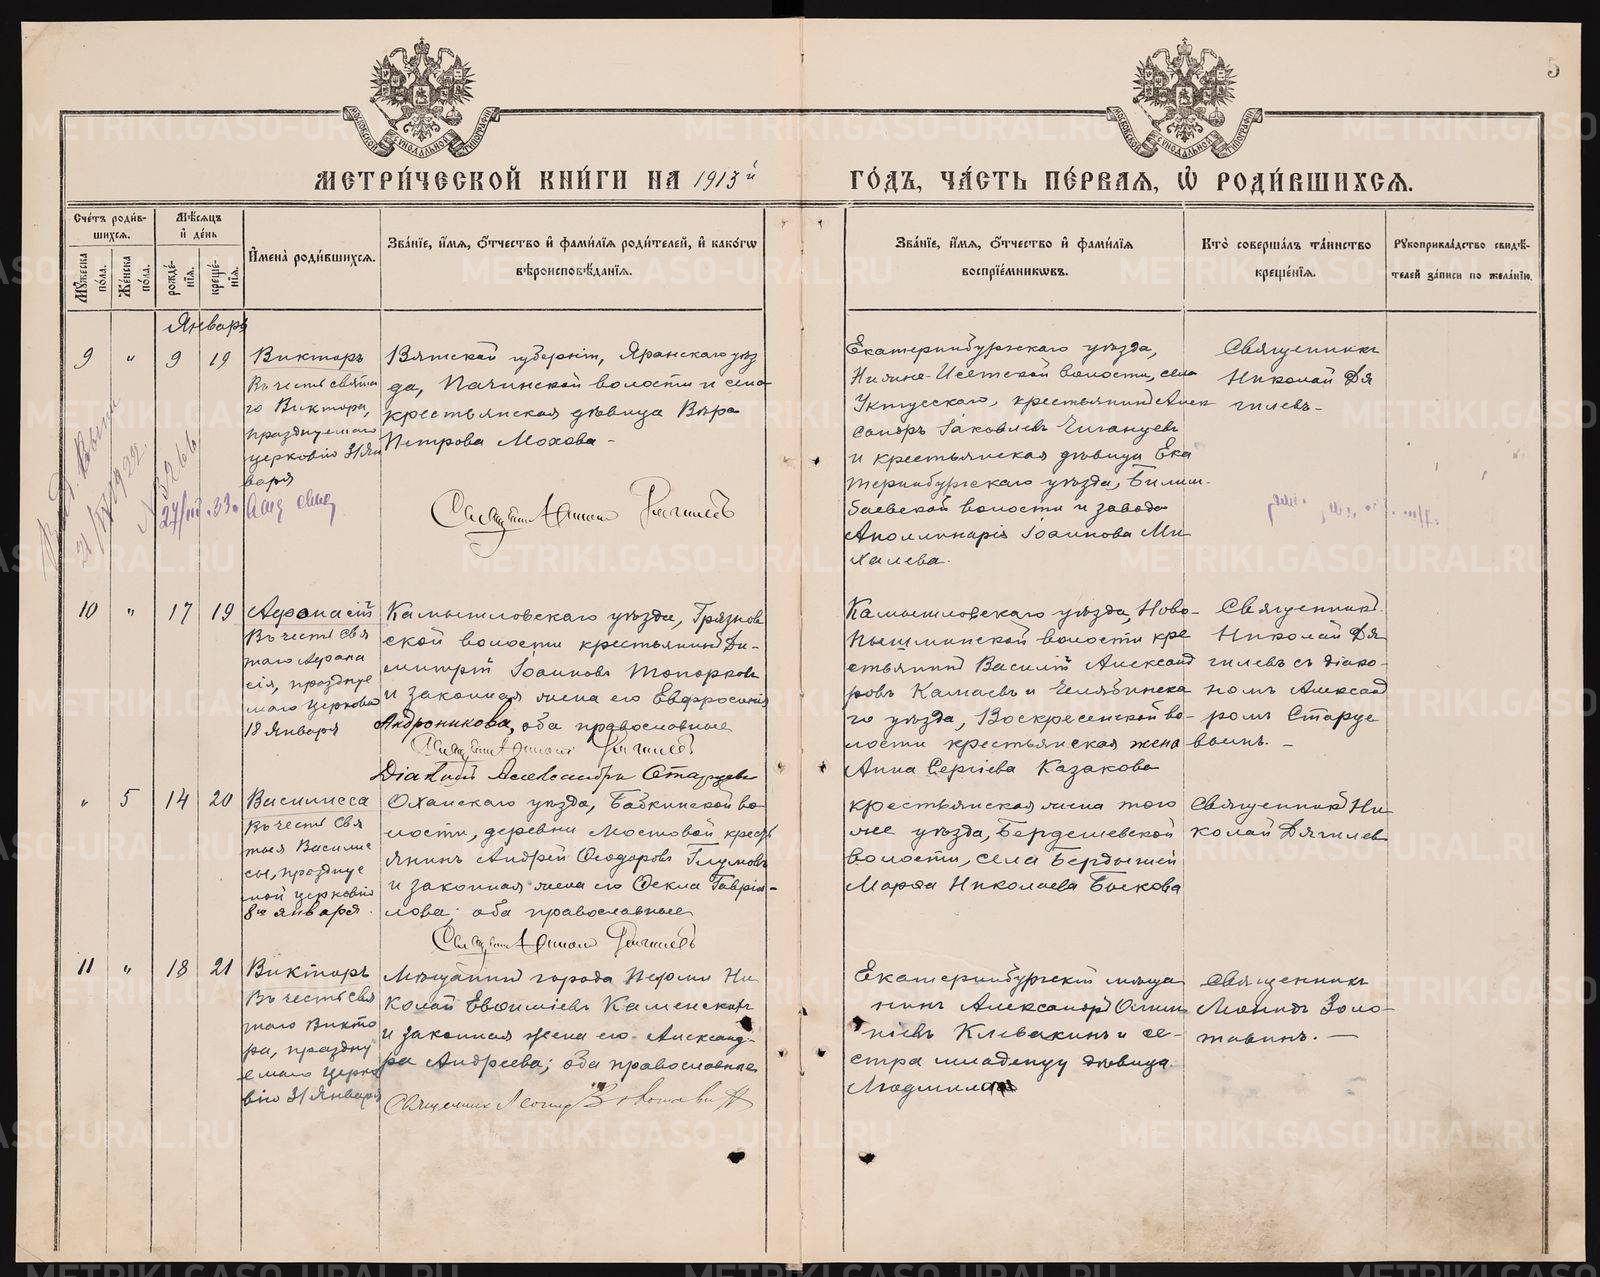 5
МОСКОВСКОЙ СѴНОДАЛЬНОЙ ТИПОГРАФІИ
МОСКОВСКОЙ СѴНОДАЛЬНОЙ ТИПОГРАФІИ
МЕТРИ́ЧЕСКОЙ КНИ́ГИ НА 1913й ГО́ДЪ, ЧА́СТЬ ПЕ́РВАЯ, Ѿ РОДИ́ВШИХСЯ.
Сче́тъ роди́в-
шихся.
Мѣ́сяцъ
и҆ де́нь
Мꙋ́жеска по́ла.
Же́нска по́ла.
рожде́-нїя.
креще́-нїя.
И҆мена̀ роди́вшихся.
Зва́нїе, и҆́мя, ѻ҆́тчество и҆ фами́лїя роди́телей, и҆ како́гѡ
вѣроисповѣ́данїя.
Зва́нїе, и҆́мя, ѻ҆́тчество и҆ фами́лїя
воспрїе́мникѡвъ.
Кто̀ соверша́лъ та́инство
креще́нїя.
Рꙋкоприкла́дство свидѣ́-
телей за́писи по жела́нїю.
Январь
9 " 9 19
Викторъ
Въ честь свята
го Виктора,
празднуемаго
церковію 31 Ян
варя
Вятской губерніи, Яранскаго уѣз
да, Пачинской волости и села
крестьянская дѣвица Вѣра
Петрова Мохова -
Екатеринбургскаго уѣзда,
Нижне-Исетской волости, села
Уктусскаго, крестьянинъ Алек
сандръ Іаковлевъ
и крестьянская дѣвица Ека
теринбургскаго уѣзда, Билим-
баевской волости и завода
Аполлинарія Іоаннова Ми
халева.
Священникъ
Николай Дя
гилевъ-
21/IV 1922.
N 3266
27/III.33.
Священ Николай Дягилевъ
10 " 17 19
Аѳанасій
Въ честь свя
таго Аѳана
сія, праздну
маго церковію
18 Января
Камышловскаго уѣзда, Грязнов
ской волости крестьянинъ Ди-
митрій Іоанновъ Топорковъ
и законная жена его Евфросинія
Андроникова, оба православные
Священ Николай Дягилевъ
Діаконъ Александръ Старцевъ
Камышловскаго уѣзда, Ново-
Пышминской волости кре
стьянинъ Василій Александ
ровъ Катаевъ и Челябинска
го уѣзда, Воскресенской во-
лости крестьянская жена
Анна Сергіева Казакова
Священникъ
Николай Дя
гилевъ съ діако-
номъ Александ
ромъ Старце
вымъ. -
" 5 14 20
Василисса
Въ честь свя
тыя Василис
сы, праздну
мой церковію
8го января.
Оханскаго уѣзда, Бабкинской во-
лости, деревни Мостовой кресть
янинъ Андрей Ѳеодоровъ Глумовъ
и законная жена его Ѳекла Гаврии-
лова; оба православные
Священ Николай Дягилевъ
крестьянская жена того
же уѣзда, Бердышевской
волости, села Бердышей
Марѳа Николаева Быкова
Священникъ Ни
колай Дягилев
11 " 18 21
Викторъ
Въ честь свя
таго Викто
ра, праздну
емаго церко
вію 31 Января
Мѣщанинъ города Перми Ни
колай Евѳиміевъ Каменскихъ
и законная жена его Александ-
ра Андреева; оба православные
Священник Леонид Золотавин
Екатеринбургскій мѣща
нинъ Александръ
піевъ Клевакинъ и се-
стра младенцу дѣвица
Людмила
Священникъ
Леонидъ Золо-
тавинъ. -
METRIKI.GASO-URAL.RU